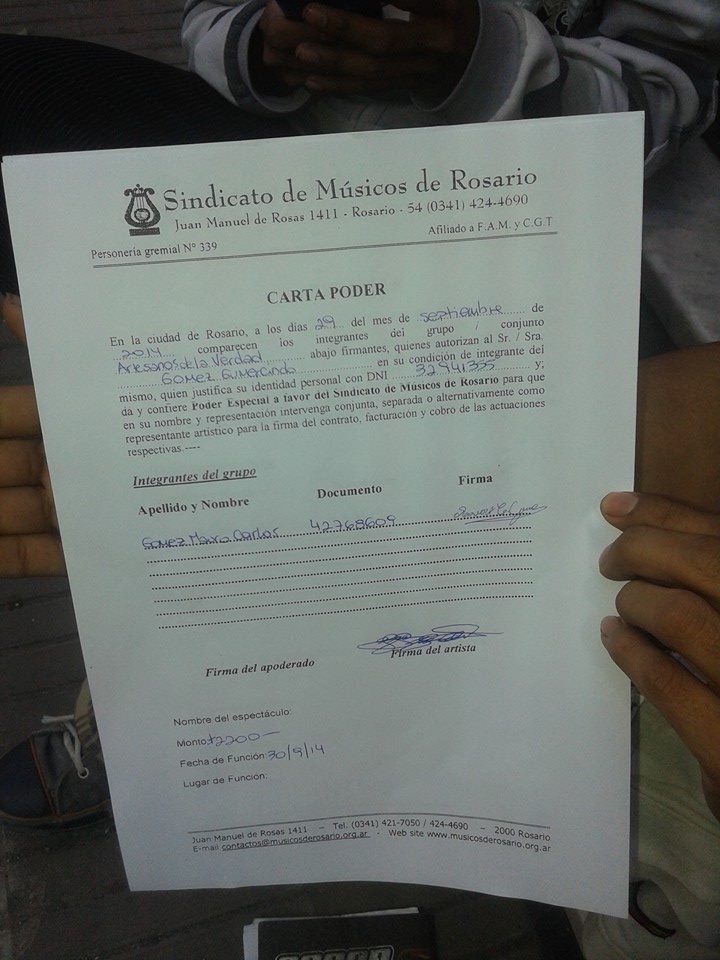 Sindicato de Músicos de Rosario
Juan Manuel de Rosas 1411 - Rosario - 54 (0341) 424-4690
Personería gremial Nº 339
Afiliado a F.A.M. y C.G.T
CARTA PODER
En la ciudad de Rosario, a los días 29 del mes de septiembre de
2014 comparecen los integrantes del grupo / conjunto
Artesanos de la Verdad abajo firmantes, quienes autorizan al Sr. / Sra.
Gomez Gumercindo en su condición de integrante del
mismo, quien justifica su identidad personal con DNI 32941355 y;
da y confiere Poder Especial a favor del Sindicato de Músicos de Rosario para que
en su nombre y representación intervenga conjunta, separada o alternativamente como
representante artístico para la firma del contrato, facturación y cobro de las actuaciones
respectivas.----
Integrantes del grupo
Apellido y Nombre Documento Firma
Gomez Mauro Carlos 42768609
Firma del apoderado Firma del artista
Nombre del espectáculo:
Monto: $2200-
Fecha de Función: 30/9/14
Lugar de Función:
Juan Manuel de Rosas 1411 – Tel. (0341) 421-7050 / 424-4690 – 2000 Rosario
E-mail contactos@musicosderosario.org.ar - Web site www.musicosderosario.org.ar